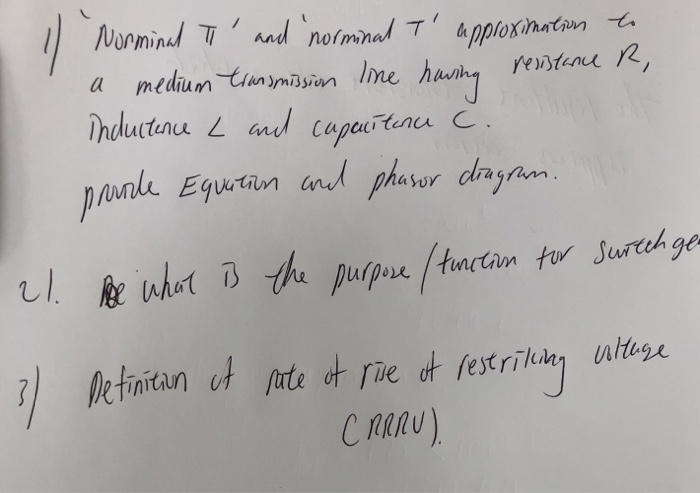 1) 'Norminal π' and 'norminal T' approximation to
a medium transmission line having resistance R,
inductance L and capacitance C.
provide Equation and phasor diagram.
2). what is the purpose/function for switchge
3) Definition of rate of rise of restriking voltage
(RRRV).